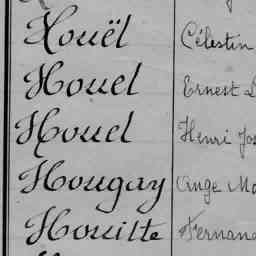 Houël Célestin
Houel Ernest
Houel Henri
Hougay Ange
Houitte